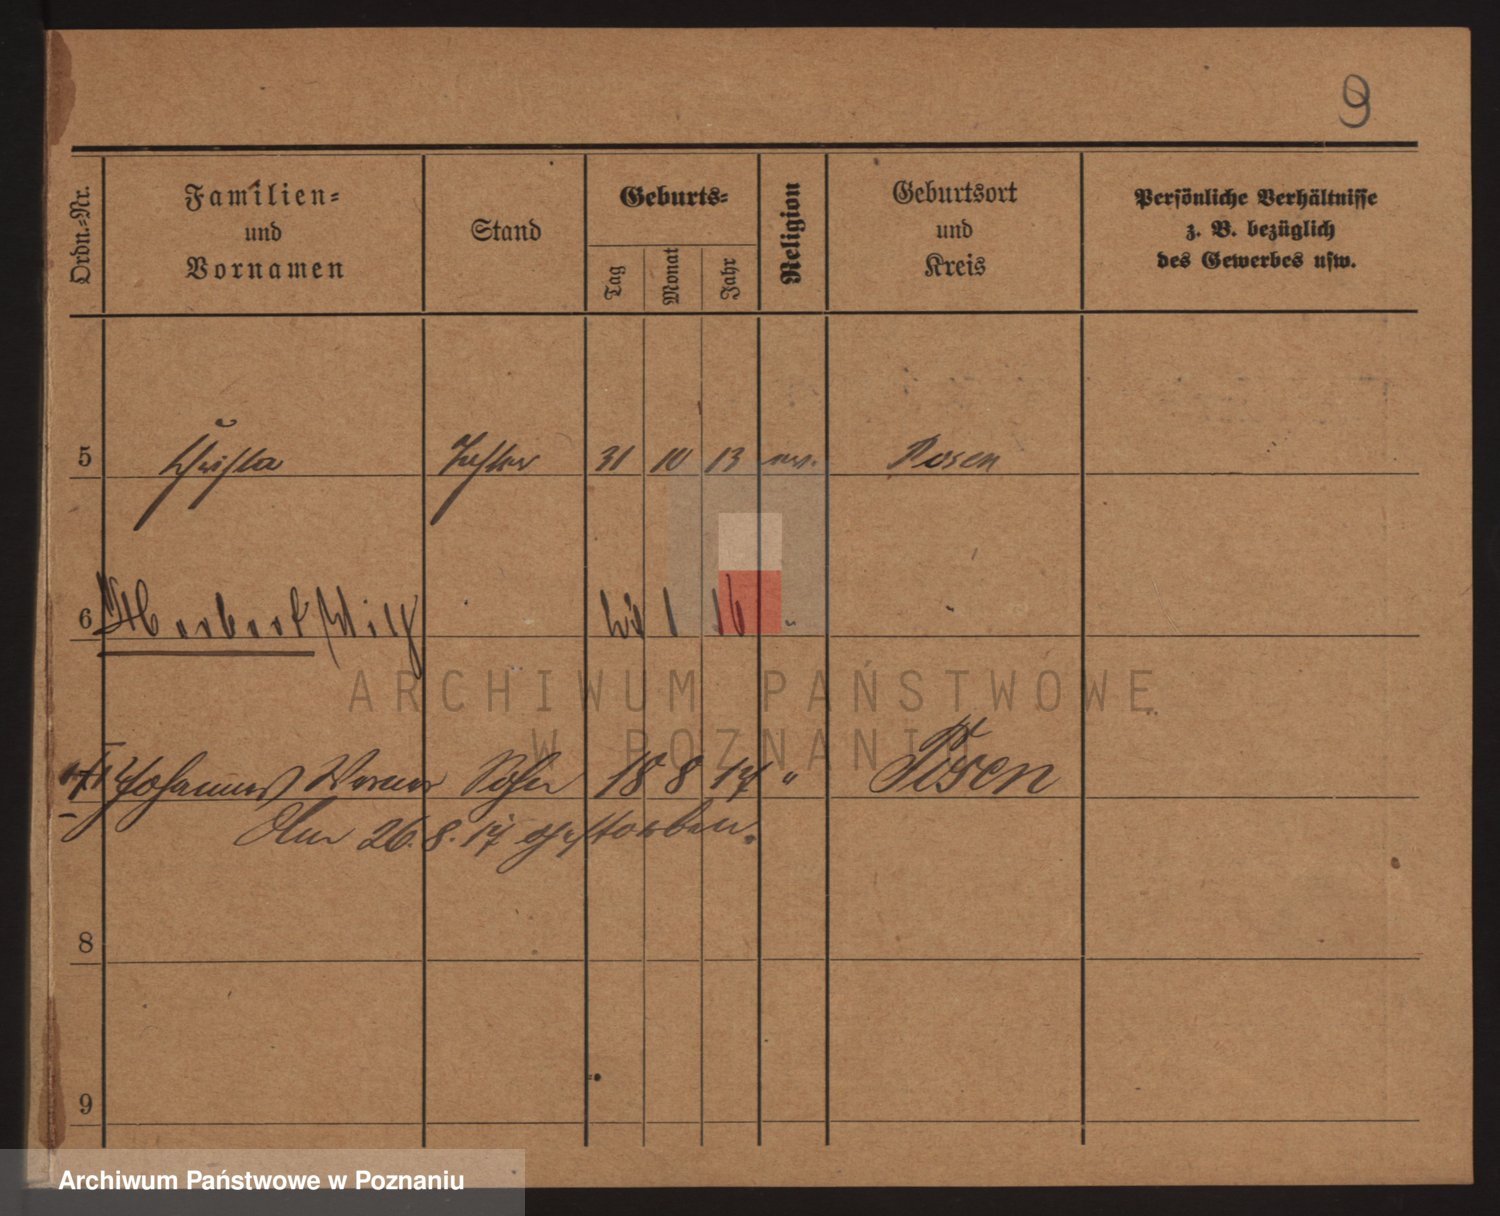 9
Ordn.-Nr.
Familien-
und
Vornamen
Stand
Geburts-
Tag
Monat
Jahr
Religion
Geburtsort
und
Kreis
Persönliche Verhältnisse
z. B. bezüglich
des Gewerbes usw.
5 31 10 13 Posen
6 Herbert Willy 1 16 "
Johannes Werner Sohn 18 8 17 " Posen
Am 26.8.17 gestorben.
8
9
ARCHIWUM PAŃSTWOWE
W POZNANIU
Archiwum Państwowe w Poznaniu